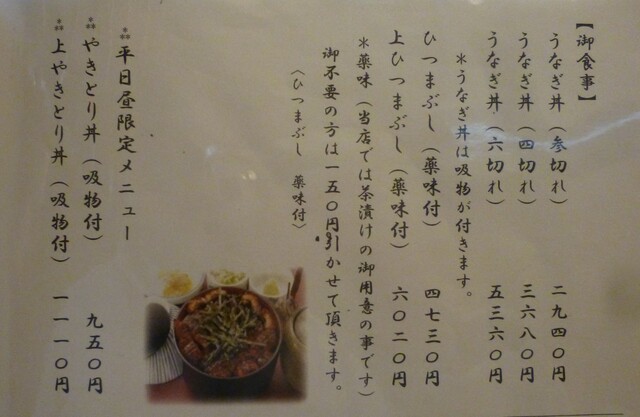 【御食事】
うなぎ丼（参切れ） 二九四〇円
うなぎ丼（四切れ） 三六八〇円
うなぎ丼（六切れ） 五三六〇円
＊うなぎ丼は吸物が付きます。
ひつまぶし（薬味付） 四七三〇円
上ひつまぶし（薬味付） 六〇二〇円
＊薬味（当店では茶漬けの御用意の事です）
御不要の方は一五〇円引かせて頂きます。
〈ひつまぶし 薬味付〉
⁂平日昼限定メニュー
⁂やきとり丼（吸物付） 九五〇円
⁂上やきとり丼（吸物付） 一一一〇円